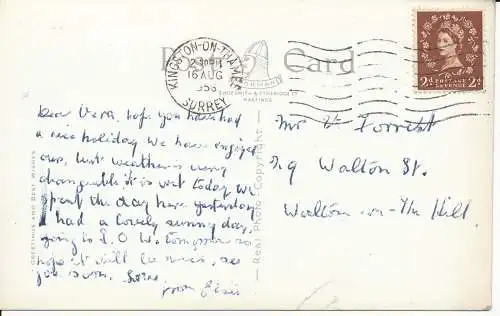 Post Card
KINGSTON-ON-THAMES
2:30 PM
16 AUG
1956
SURREY
NORMAN
SHOESMITH & ETHERIDGE LTD
HASTINGS
POSTAGE REVENUE
2D 2D
GREETINGS AND BEST WISHES
Real Photo Copyright
Dear Vera, hope you have had
a nice holiday we have enjoyed
ours, but weather is very
changeable it is wet today we
spent the day here yesterday
I had a lovely sunny day,
going to I. O. W. tomorrow so
hope it will be nice, see
you soon. Love
from Elsie
Mr Forrest
29 Walton St.
Walton-on-The Hill.